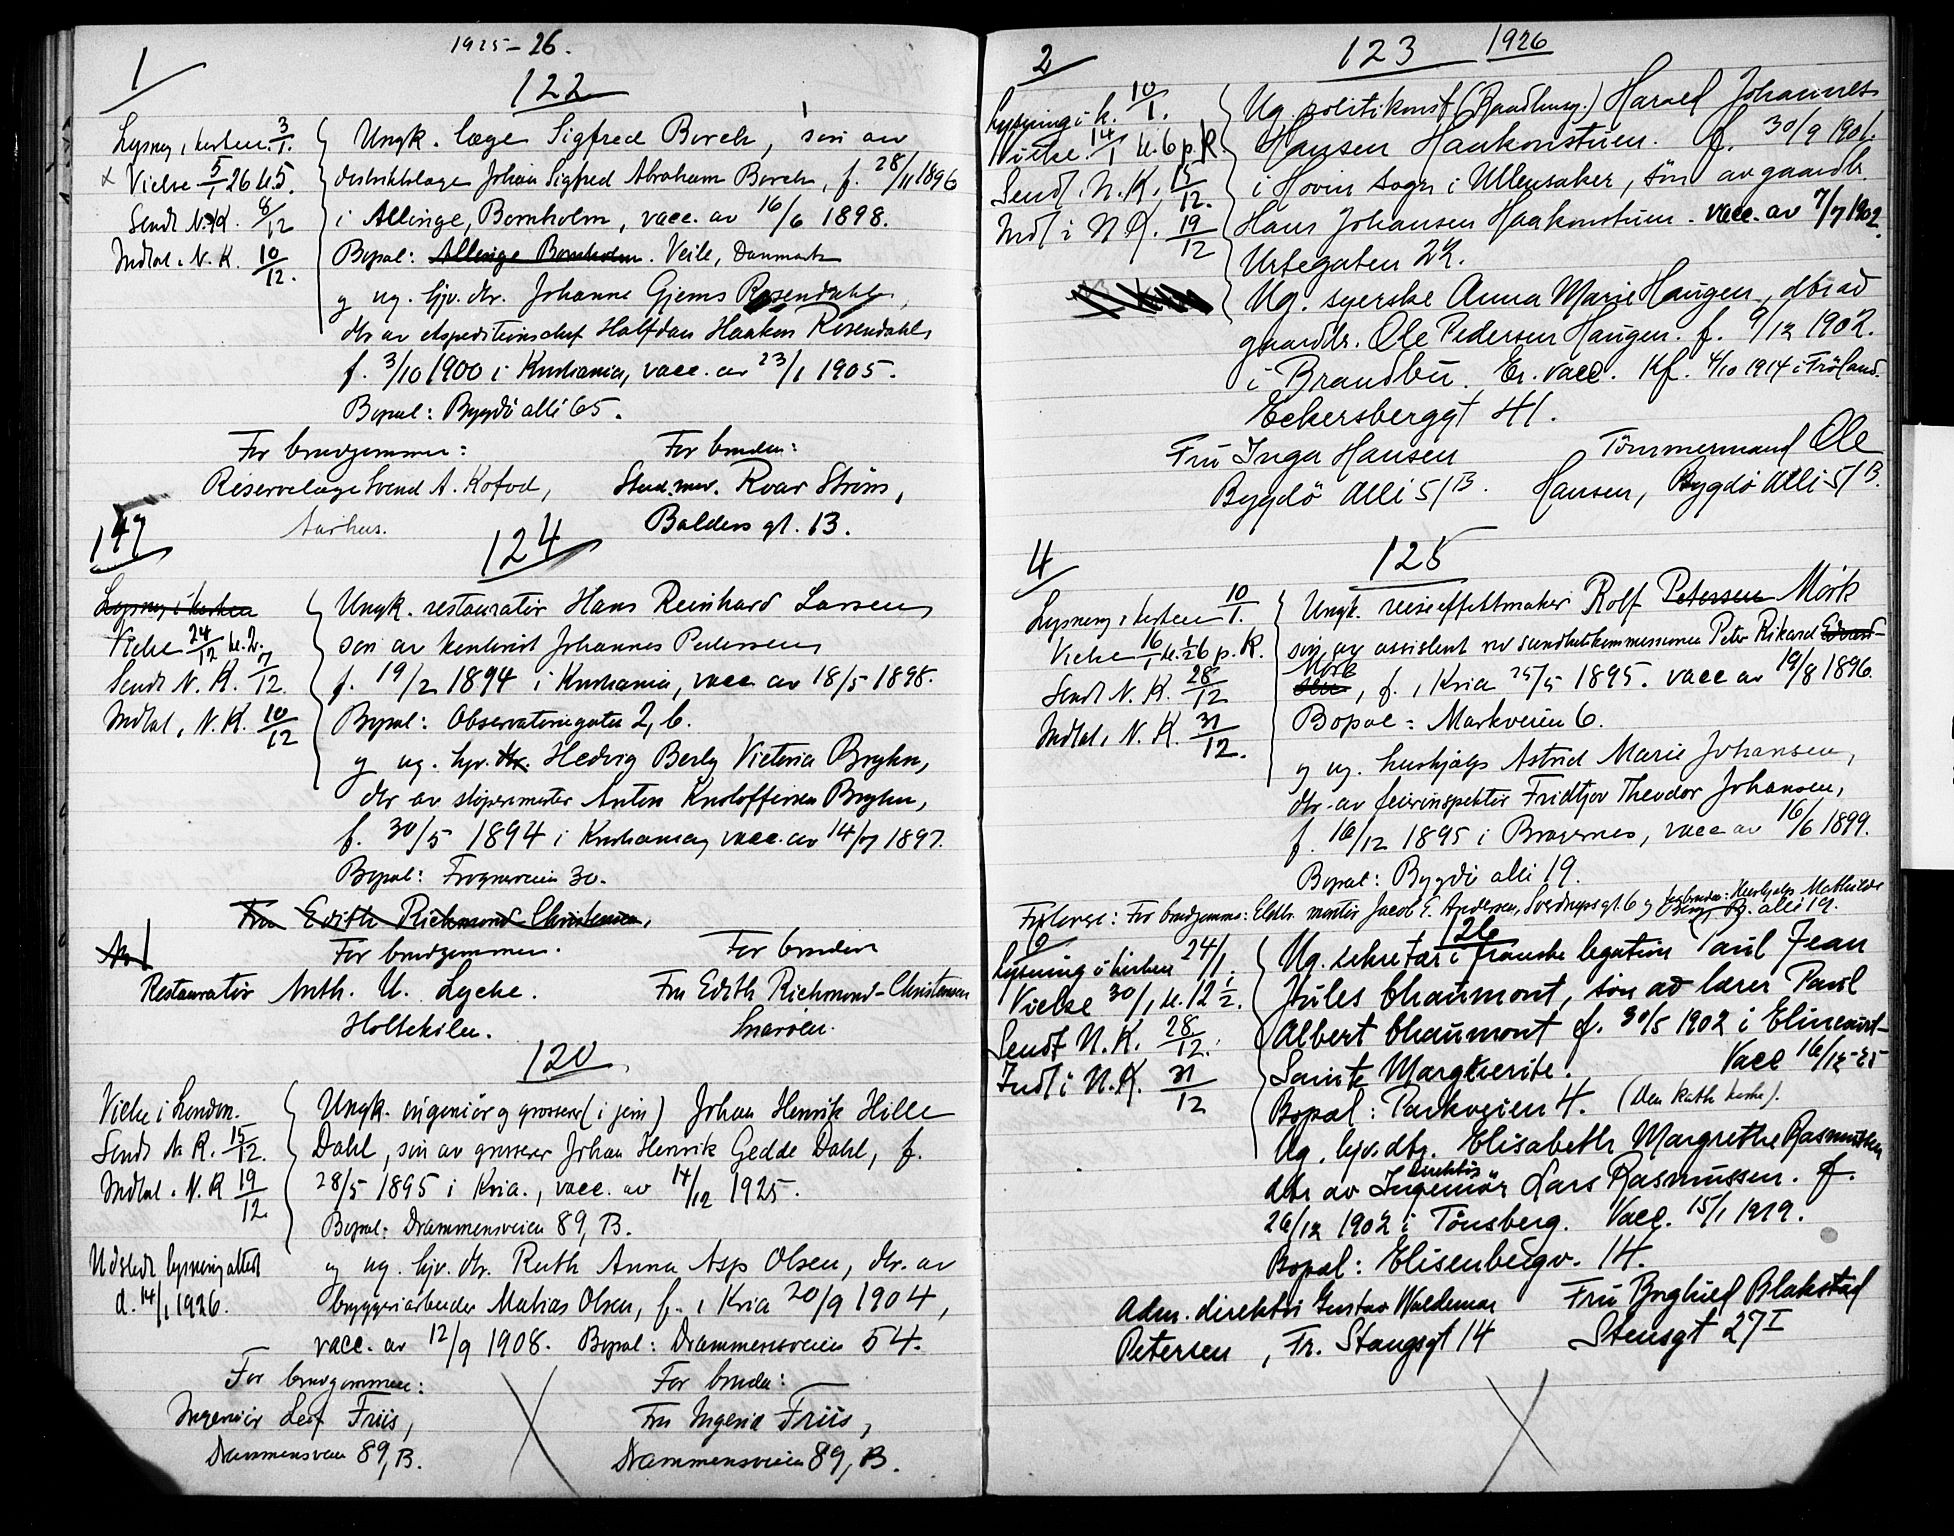 1925-26.
1
122
Lysning i kirken 3/1.
x Vielse 5/1 26 kl. 5.
Sendt N. K. 8/12
Indtat. N. K. 10/12.
Ungk. læge Sigfred Borch, søn av
distriktslæge Johan Sigfred Abraham Borch, f. 28/11 1896
i Allinge, Bornholm, vacc. av 16/6 1898.
Bopæl: Allinge Bornholm. Veile, Danmark
g ug. hjv. dtr. Johanne Gjems Rosendahl,
dtr av ekspeditionschef Halfdan Haaken Rosendahl,
f. 3/10 1900 i Kristiania, vacc. av 23/1 1905.
Bopæl: Bygdö alle 65.
For brudgommen: For bruden:
Reservelæge Svend A. Kofod, Stud. mer. Roar Ström,
Aarhus. Balders gt. 13.
147
124
Lysning i kirken
Vielse 24/12 kl. 2.
Sendt N. K. 7/12.
Indtat. N. K. 10/12
Ungk. restauratör Hans Reinhard Larsen,
søn av Johannes Pedersen
f. 19/2 1894 i Kristiania, vacc av 18/5 1898.
Bopæl: Observatoriegaten 2, b.
g ug. hjv. dtr. Hedvig Berly Victoria Bryhn,
dtr av støpermester Anton Kristoffersen Bryhn,
f. 30/5 1894 i Kristiania, vacc. av 14/7 1897.
Bopæl: Frognerveien 30.
Fru Edith Richmond Christensen,
For brudgommen. For bruden
Restauratör Anth. U. Lyche. Fru Edith Richmond-Christensen
Holtekilen. Snarøen.
120
Vielse i London.
Sendt N. K. 15/12.
Indtat. N. K 19/12
Utstedt lysningsattest
d. 14/1 1926.
Ungk. ingeniör g grosserer (i jern) Johan Henrik Hille
Dahl, søn av grosserer Johan Henrik Gedde Dahl, f.
28/5 1895 i Kria., vacc. av 14/12 1925.
Bopæl: Drammensveien 89, B.
g ug. hjv. dtr. Ruth Anna Asp Olsen, dtr. av
bryggeriarbeider Matias Olsen, f. i Kria 20/9 1904,
vacc. av 12/9 1908. Bopæl: Drammensveien 54.
For brudgommen: For bruden:
Ingeniör Leif Friis, Fru Ingerid Friis,
Drammensveien 89, B. Drammensveien 89, B.
2
123 1926
Lysning i k. 10/1.
Vielse 14/1 kl. 6 p. R
Sendt. N. K. 15/12.
Indt i N K. 19/12
Ug politikonst (Raadhusg.) Harald Johannes
Hansen Haakonstuen. f. 30/9 1901.
i Hovin sogn i Ullensaker, søn av gaardbr.
Hans Johansen Haakonstuen. vacc. av 7/7 1902.
Urtegaten 22.
Ug. syerske Anna Marie Haugen, dtr ad
gaardbr. Ole Pedersen Haugen. f. 9/12 1902.
i Brandbu. Er. vacc. Kf. 4/10 1914 i Fröland.
Eckersberggt 41.
Fru Inga Hansen Tömmermand Ole
Bygdö Alle 51 B. Hansen, Bygdö Alle 51 B.
4
125
Lysning i kirken 10/1.
Vielse 16/1 kl. 1/2 6 p. K.
Sendt N. K. 28/12
Indtat. N. K. 31/12.
Ungk. reiseeffektmaker Rolf Petersen Mörk
søn av assistent ved sundhetskommissionen Peter Rikard Edvard-
sen Mörk, f. i Kria 25/5 1895. vacc av 19/8 1896.
Bopæl: Markveien 6.
g ug. hushjælp Astrid Marie Johansen,
dtr. av feierinspektör Fridtjov Theodor Johansen,
f. 16/12 1895 i Bragernes, vacc av 16/6 1899.
Bopæl: Bygdö alle 19.
Forlovere: For brudgommen: Elektr. montör Jacob E. Andersen, Sverdrupsgt. 6 g for bruden: Hushjælp Mathilde
B. alle 19.
6
126
Lysning i kirken 24/1.
Vielse 30/1 kl. 12 1/2.
Sendt N. K. 28/12.
Indt i N. K. 31/12
Ug. sekretær i franske legation Paul Jean
Jules Chaumont, søn ad lærer Paul
Albert Chaumont f. 30/5 1902 i Elincourt-
Sainte Marguerite. Vacc 16/12-25
Bopæl: Parkveien 4. (Den kath kirke).
Ug. hjv. dtr. Elisabeth Margrethe Rasmussen
dtr av Ingeniör direktör Lars Rasmussen. f.
26/12 1902 i Tönsberg. Vacc. 15/1 1919.
Bopæl: Elisenbergv. 14.
Adm. direktör Gustav Waldemar Fru Borghild Blakstad
Petersen, Fr. Stangsgt 14 Stensgt 27 I